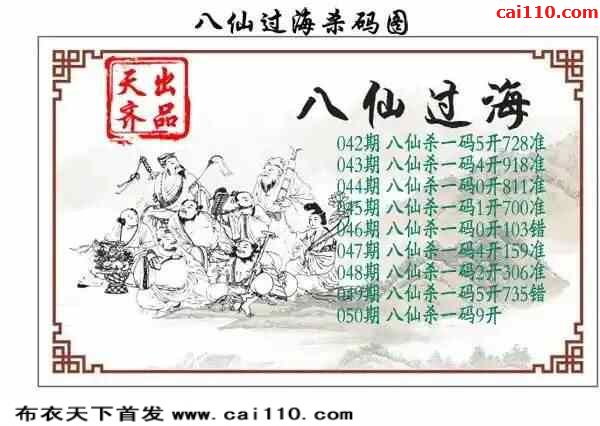 八仙过海杀码图
cai110.com
天齐
出品
八仙过海
042期 八仙杀一码5开728准
043期 八仙杀一码4开918准
044期 八仙杀一码0开811准
045期 八仙杀一码1开700准
046期 八仙杀一码0开103错
047期 八仙杀一码4开159准
048期 八仙杀一码2开306准
049期 八仙杀一码5开735错
050期 八仙杀一码9开
布衣天下首发 www.cai110.com